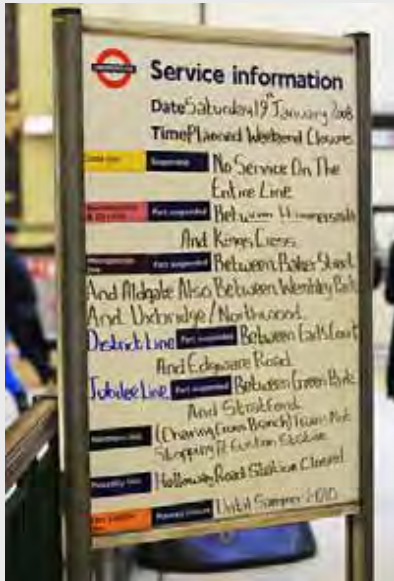 UNDERGROUND
Service information
Date Saturday 19th January 2008
Time Planned Weekend Closures
Circle Line Suspended No Service On The
Entire Line
Hammersmith & City Line Part suspended Between Hammersmith
And Kings Cross
Metropolitan Line Part suspended Between Baker Street
And Aldgate Also Between Wembley Park
And Uxbridge / Northwood.
District Line Part suspended Between Earls Court
And Edgware Road.
Jubilee Line Part suspended Between Green Park
And Stratford.
Northern line (Charing Cross Branch) Trains Not
Stopping At Euston Station
Piccadilly line Holloway Road Station Closed
East London line Planned closure Until Summer 2010